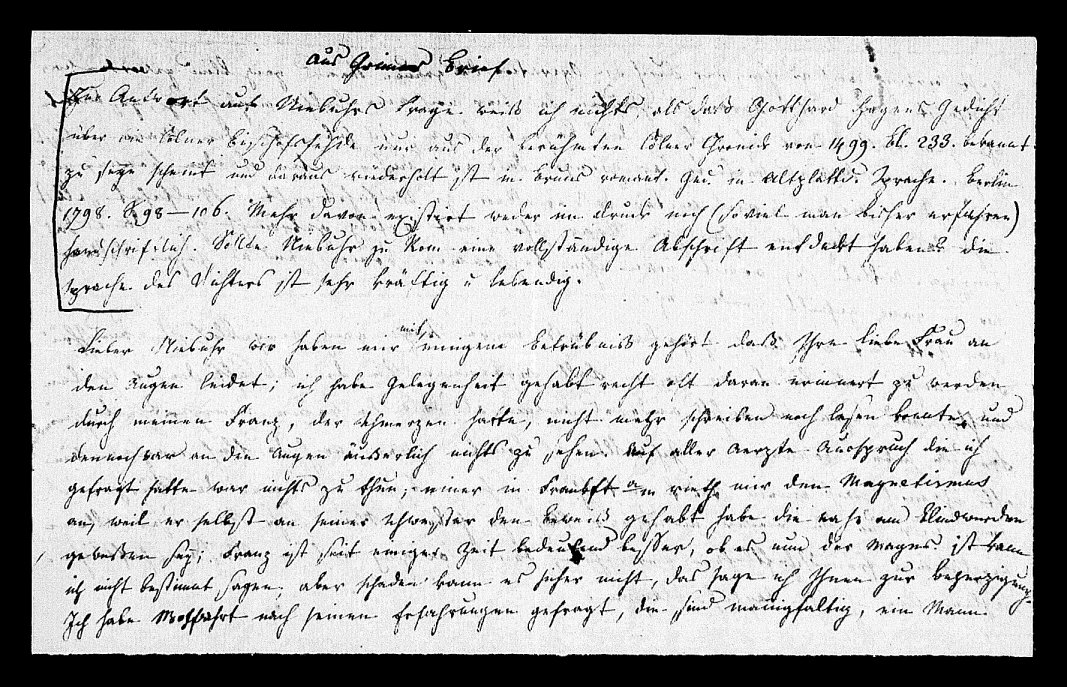 Aus Grimms Brief.
Zur Antwort auf Niebuhrs Frage weiß ich nichts, als daß Gotthard Hagens Gedicht
über die Cölner Bischofsfehde nur aus der berühmten Cölner Chronik von 1499. bl. 233. bekannt
zu seyn scheint und daraus wiederholt ist in Bruns romant. Ged. in Altplattd. Sprache. Berlin
1798. S. 98–106. Mehr davon existirt weder im Druck noch (soviel man bisher erfahren)
handschriftlich. Sollte Niebuhr zu Rom eine vollständige Abschrift entdeckt haben? die
Sprache des Dichters ist sehr kräftig u lebendig.
Lieber Niebuhr wir haben mit innigem Betrübniß gehört daß Ihre liebe Frau an
den Augen leidet; ich habe Gelegenheit gehabt recht oft daran erinnert zu werden
durch meinen Franz, der Schmerzen hatte, nicht mehr schreiben noch lesen konnte, und
dennoch war an den Augen äußerlich nichts zu sehen. Auf aller Aerzte Ausspruch die ich
gefragt hatte war nichts zu thun; einer in Frankft a/m rieth mir den Magnetismus
an, weil er selbst an seiner Schwester den Beweiß gehabt habe die nahe am blindwerden
gewesen sey; Franz ist seit einiger Zeit bedeutend besser, ob es nun der Magnet. ist kann
ich nicht bestimmt sagen, aber schaden kann es sicher nicht, das sage ich Ihnen zur Beherzigung.
Ich habe nach seinen Erfahrungen gefragt, die sind manigfaltig, ein Mann